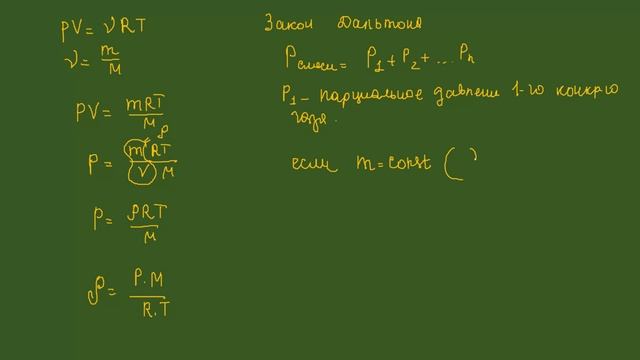 PV = νRT
ν = m/M
PV = mRT/M
P = mRT/VM ρ
P = ρRT/M
ρ = P.M/R.T
Закон Дальтона
Pсмеси = P1 + P2 + ... Pn
P1 – парциальное давлени 1-го
газа.
если m = const ( )